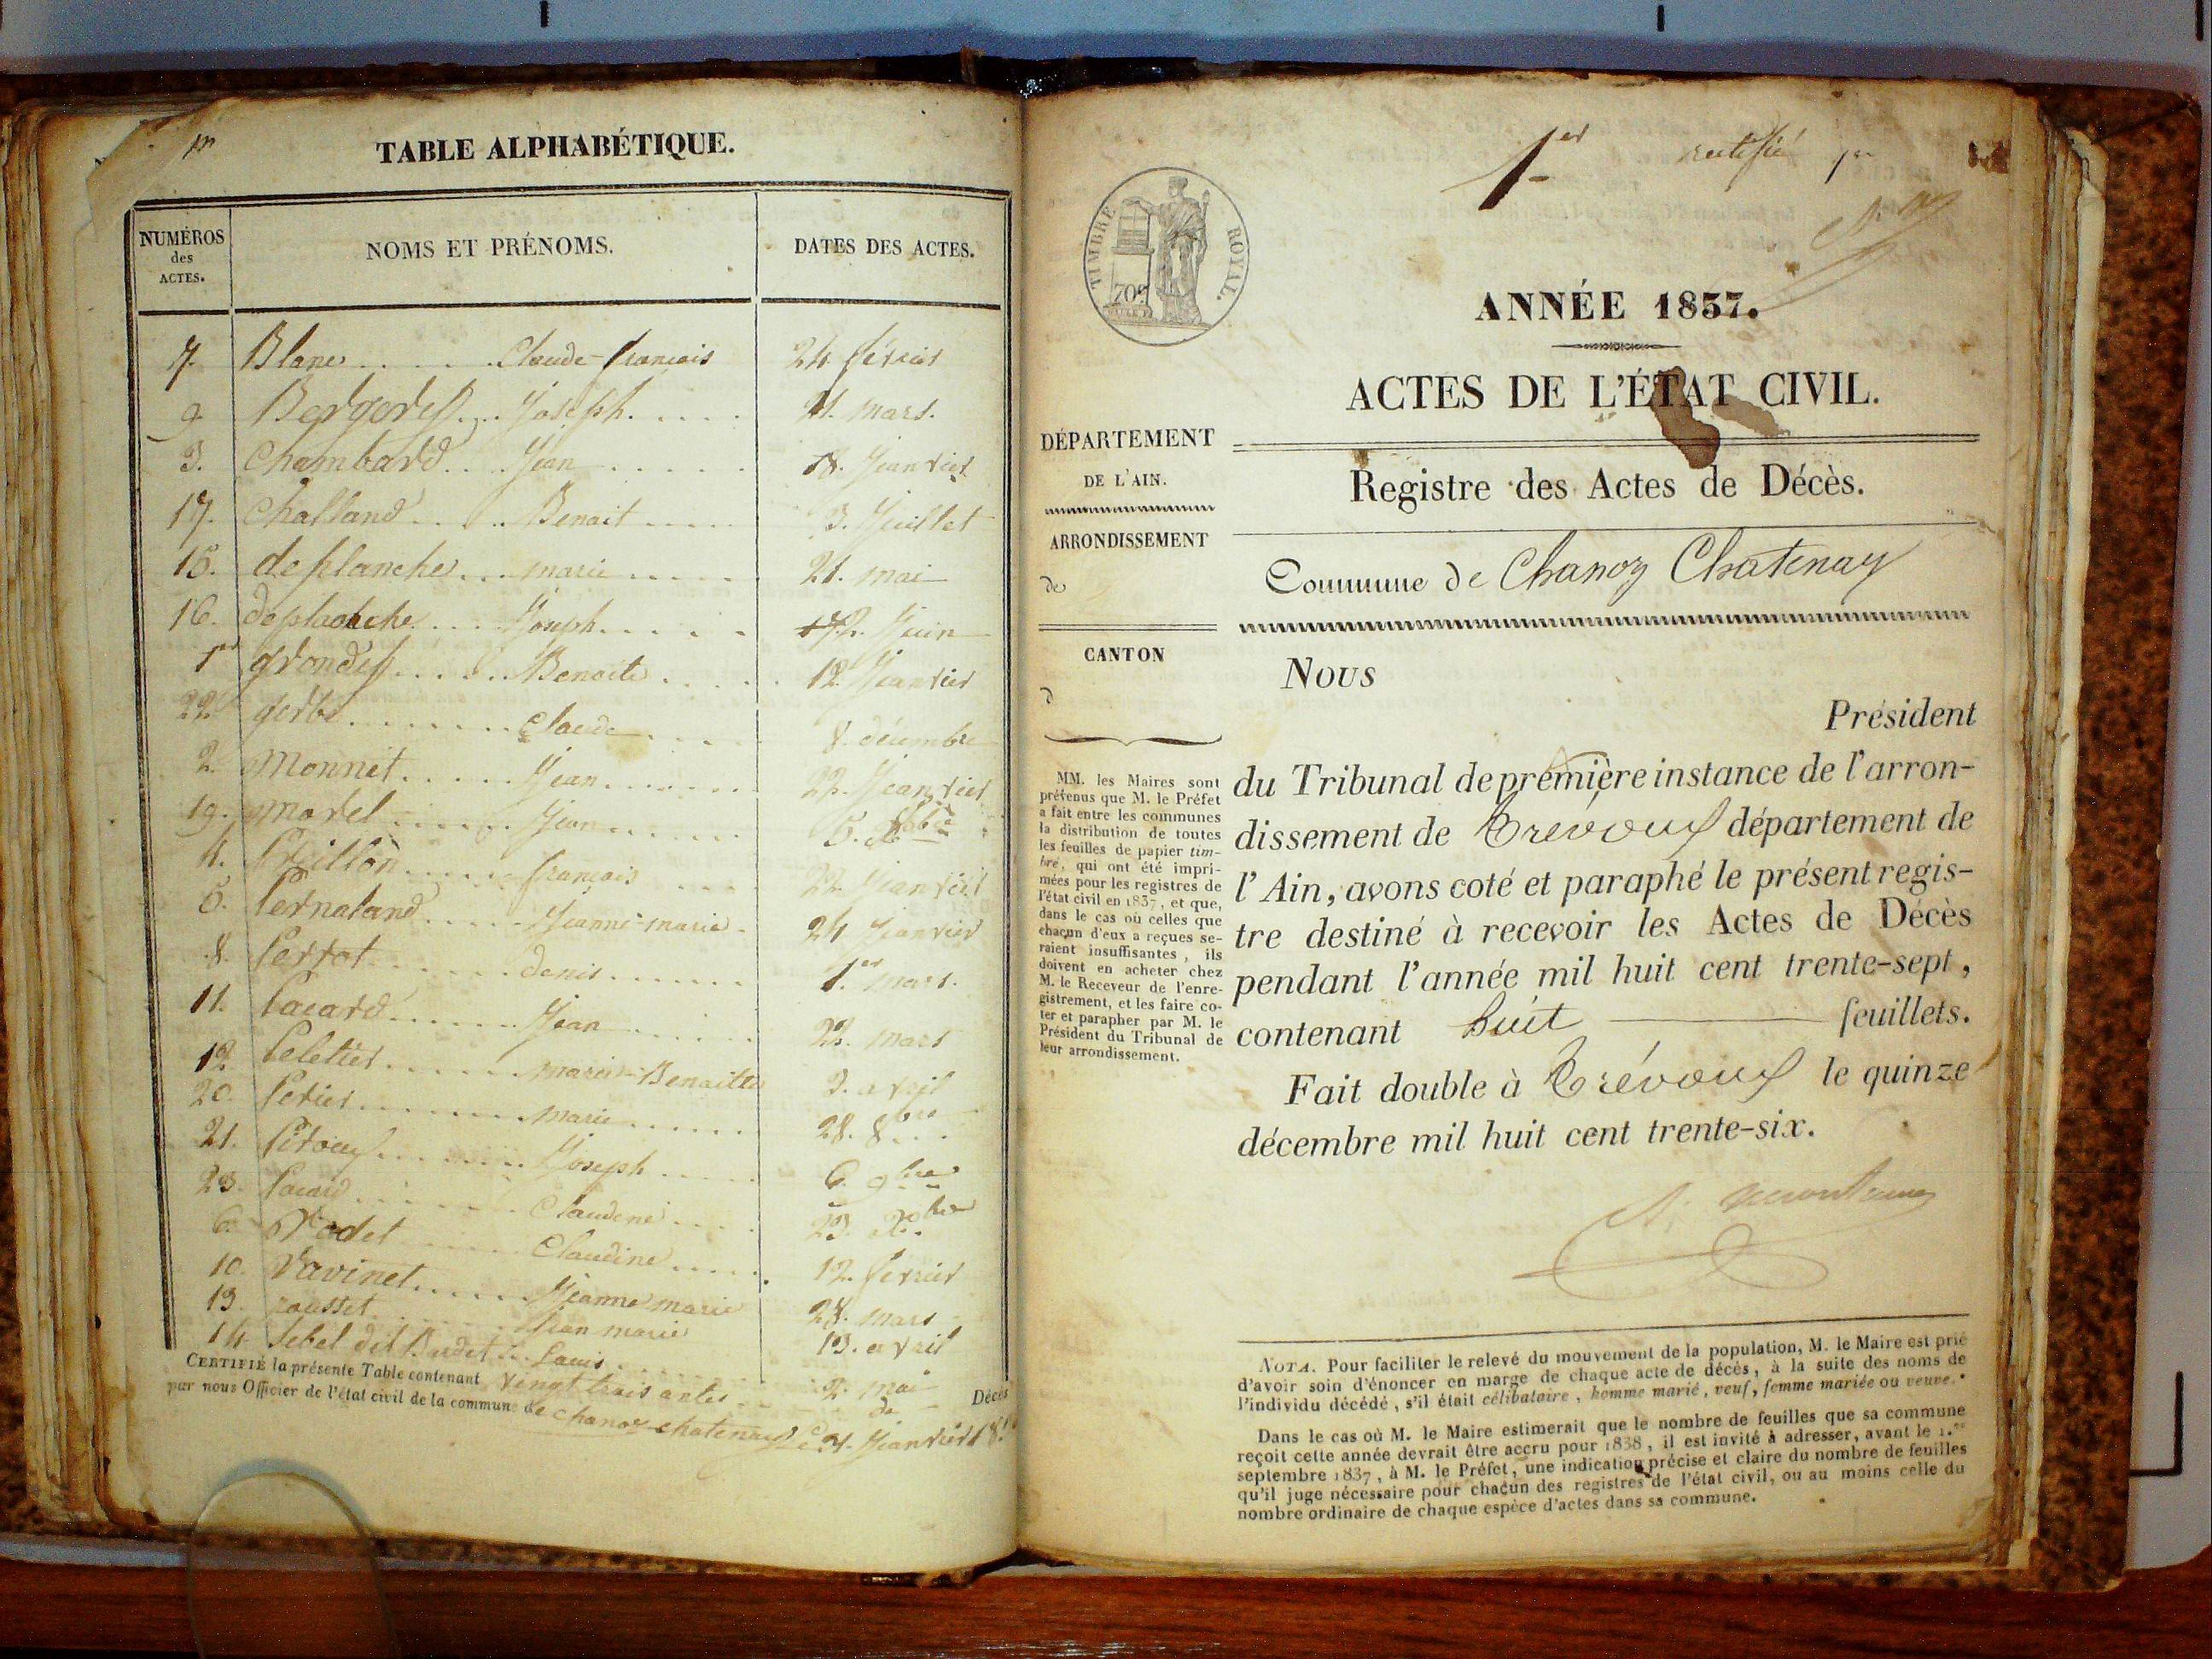 TABLE ALPHABÉTIQUE.
NUMÉROS
des
ACTES.
NOMS ET PRÉNOMS.
DATES DES ACTES.
7. Blanc Claude-francois 24 février
9 Joseph. 21. mars.
3. Chambard Jean 18. Jeanvier
17. Challand Benoit 3. Juillet
15. deplanche marie 21. mai
16. deplanche Joseph. 12. Juin
1er Benoite 12 Jeanvier
22. Claude 8. décembre
2. Monnet Jean 22. Jeanvier
19. morel Jean 5.
4. francois 22. Jeanvier
5. Jeanne-marie 24 Jeanvier
8. Perrot denis 1.er mars.
11. Pacard Jean 22. mars
12. Peletier marie-Benoitte 2. avril
20. Perier marie 28. 8bre
21. Joseph 6. 9bre
23. Pacard Claudine 23. Xbre
6. Claudine 12. février
10. Ravinet Jeanne marie 28. mars
13. rousset Jean marie 13. avril
14 Louis 2. mai
CERTIFIÉ la présente Table contenant vingt trois actes de Décès
par nous Officier de l'état civil de la commune de chanoz-chatenay Le Jeanvier
1er
rectifié
TIMBRE ROYAL.
70c
ANNÉE 1837.
ACTES DE L'ÉTAT CIVIL.
DÉPARTEMENT
DE L'AIN.
ARRONDISSEMENT
de
CANTON
d
Registre des Actes de Décès.
Commune de Chanoz Chatenay
MM. les Maires sont
prévenus que M. le Préfet
a fait entre les communes
la distribution de toutes
les feuilles de papier tim-
bré, qui ont été impri-
mées pour les registres de
l'état civil en 1837, et que,
dans le cas où celles que
chacun d'eux a reçues se-
raient insuffisantes, ils
doivent en acheter chez
M. le Receveur de l'enre-
gistrement, et les faire co-
ter et parapher par M. le
Président du Tribunal de
leur arrondissement.
Nous
Président
du Tribunal de première instance de l'arron-
dissement de Trévoux département de
l'Ain, avons coté et paraphé le présent regis-
tre destiné à recevoir les Actes de Décès
pendant l'année mil huit cent trente-sept,
contenant huit feuillets.
Fait double à Trévoux le quinze
décembre mil huit cent trente-six.
NOTA. Pour faciliter le relevé du mouvement de la population, M. le Maire est prié
d'avoir soin d'énoncer en marge de chaque acte de décès, à la suite des noms de
l'individu décédé, s'il était célibataire, homme marié, veuf, femme mariée ou veuve.
Dans le cas où M. le Maire estimerait que le nombre de feuilles que sa commune
reçoit cette année devrait être accru pour 1838, il est invité à adresser, avant le 1.er
septembre 1837, à M. le Préfet, une indication précise et claire du nombre de feuilles
qu'il juge nécessaire pour chacun des registres de l'état civil, ou au moins celle du
nombre ordinaire de chaque espèce d'actes dans sa commune.